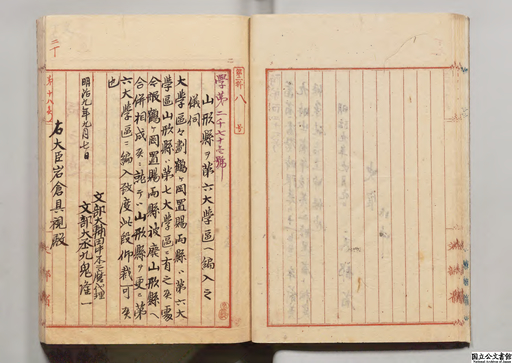 八号
學第二千七十七號
山形縣ヲ第六大學區ヘ編入之
儀伺
大學區々劃鶴ヶ岡置賜両縣ハ第六大
學區山形縣ハ第七大學區ニ有之候處
今般鶴ヶ岡置賜両縣被廃山形縣
合併相成候ニ就テハ山形縣ヲ更ニ第
六大學區ニ編入致度此段仰裁可候
也
明治九年九月七日
文部大輔田中不二麿代理
文部大丞九鬼隆一
右大臣岩倉具視殿
国立公文書館
National Archives of Japan